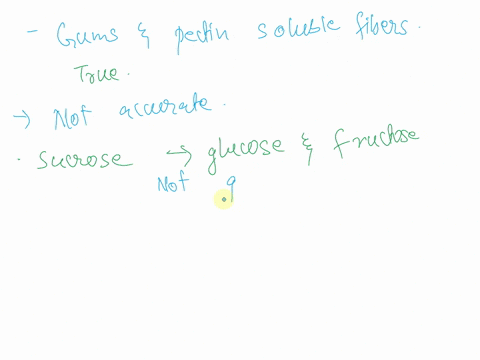 - Gums & pectin soluble fibers.
True.
→ Not accurate.
· Sucrose → glucose & fructose
Not g